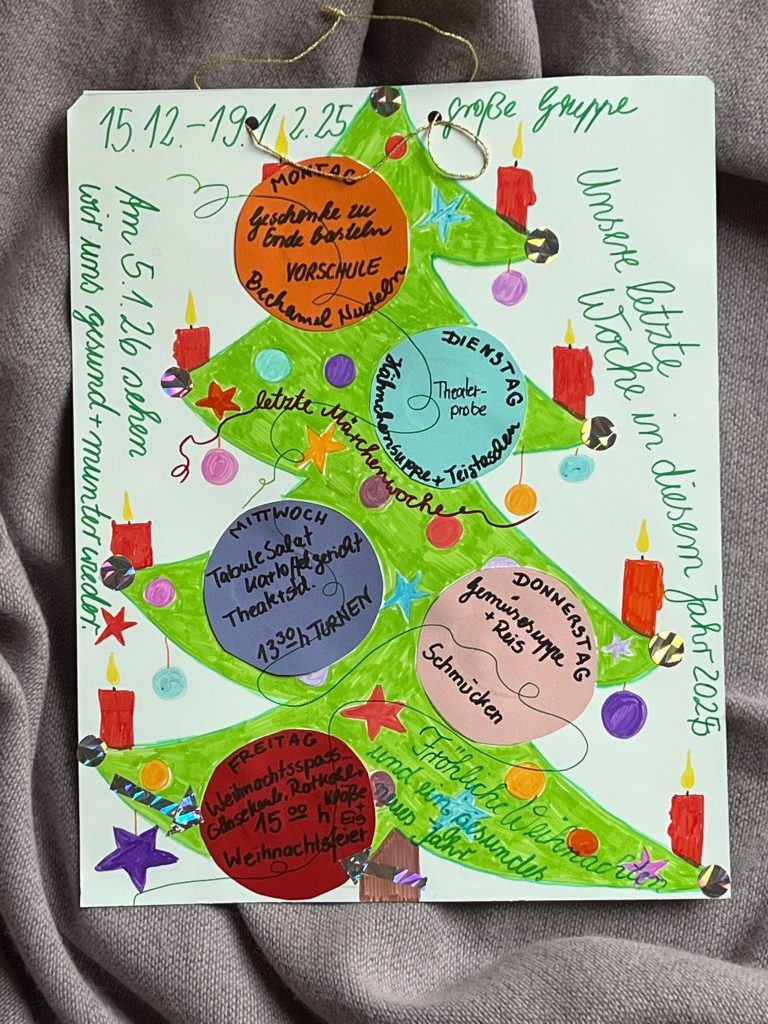 15.12.-19.12.25
große Gruppe
Unsere letzte
Woche in diesem Jahr 2025
Am 5.1.26 sehen
wir uns gesund + munter wieder.
MONTAG
Geschenke zu
Ende basteln
VORSCHULE
Bechamel Nudeln
DIENSTAG
Theater-
probe
Hühnchensuppe + Teigtaschen
letzte Märchenwoche
MITTWOCH
Tabule Salat
Kartoffelgericht
Theaterstd.
13³⁰h TURNEN
DONNERSTAG
Gemüsesuppe
+ Reis
Schmücken
FREITAG
Weihnachtsspass
Gänsekeule, Rotkohl +
Klöße
15⁰⁰ h + Eis
Weihnachtsfeier
Fröhliche Weihnachten
und ein gesundes
neues Jahr